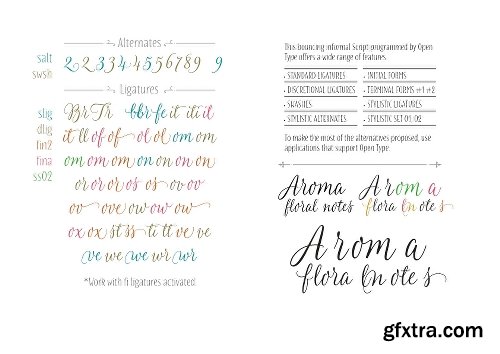 Alternates
salt
swsh
2 2 3 3 4 4 5 6 7 8 9 9
Ligatures
slig
dlig
fin2
fina
ss02
Br Th fe it iti il
it ll of of ol ol om om
om om om on on on
or or or os ov ov
ov ow ow ow ow
ox ox st ss ti tt ve ve
ve we we we wr wr
*Work with fi ligatures activated.
This bouncing informal Script programmed by Open
Type offers a wide range of features.
• STANDARD LIGATURES
• INITIAL FORMS
• DISCRETIONAL LIGATURES
• TERMINAL FORMS #1 #2
• SWASHES
• STYLISTIC LIGATURES
• STYLISTIC ALTERNATES
• STYLISTIC SET 01, 02
To make the most of the alternatives proposed, use
applications that support Open Type.
Aroma
floral notes
A rom a
flora ln ote s
A rom a
flora ln ote s
gfxtra.com